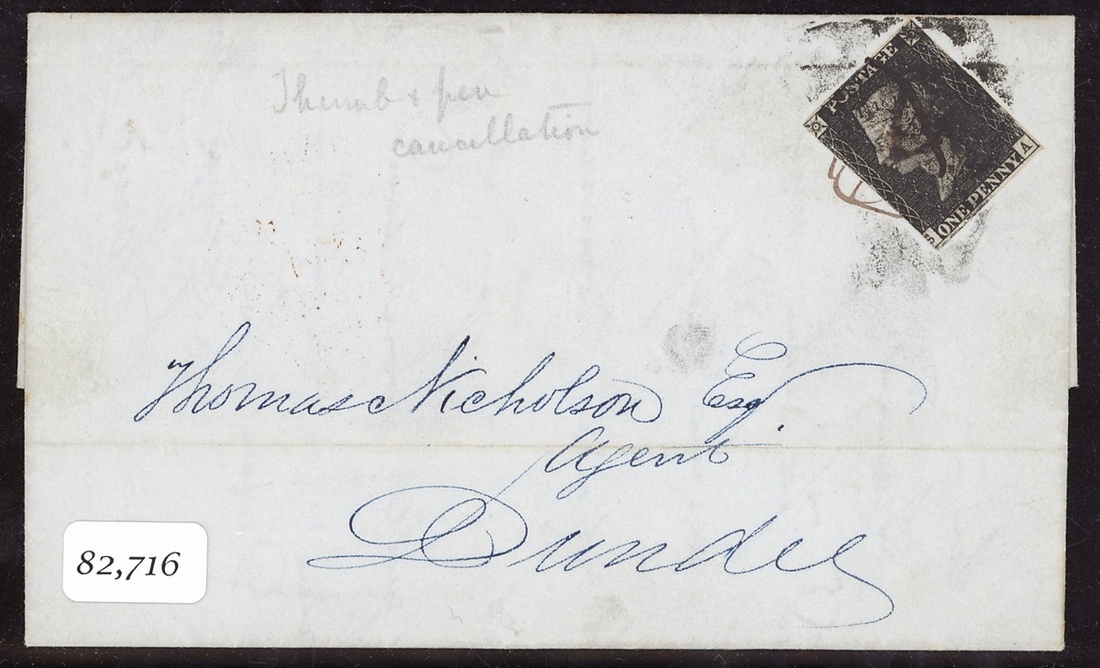 Thumb & pen
cancellation
POSTAGE
ONE PENNY
S A
Thomas Nicholson Esq.
Agent
Dundee
82,716